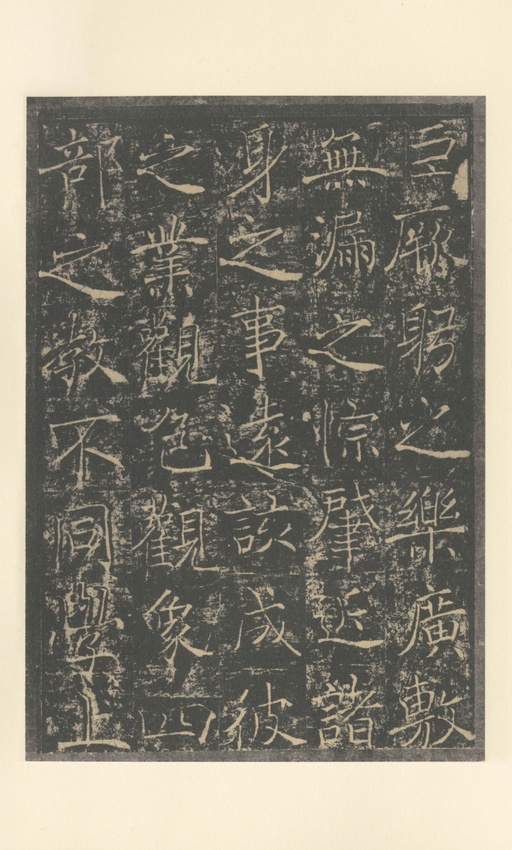 厥躬之樂廣敷
無漏之悰肇近諸
身之事遠該成彼
之業觀色觀象四
部之教不同學上